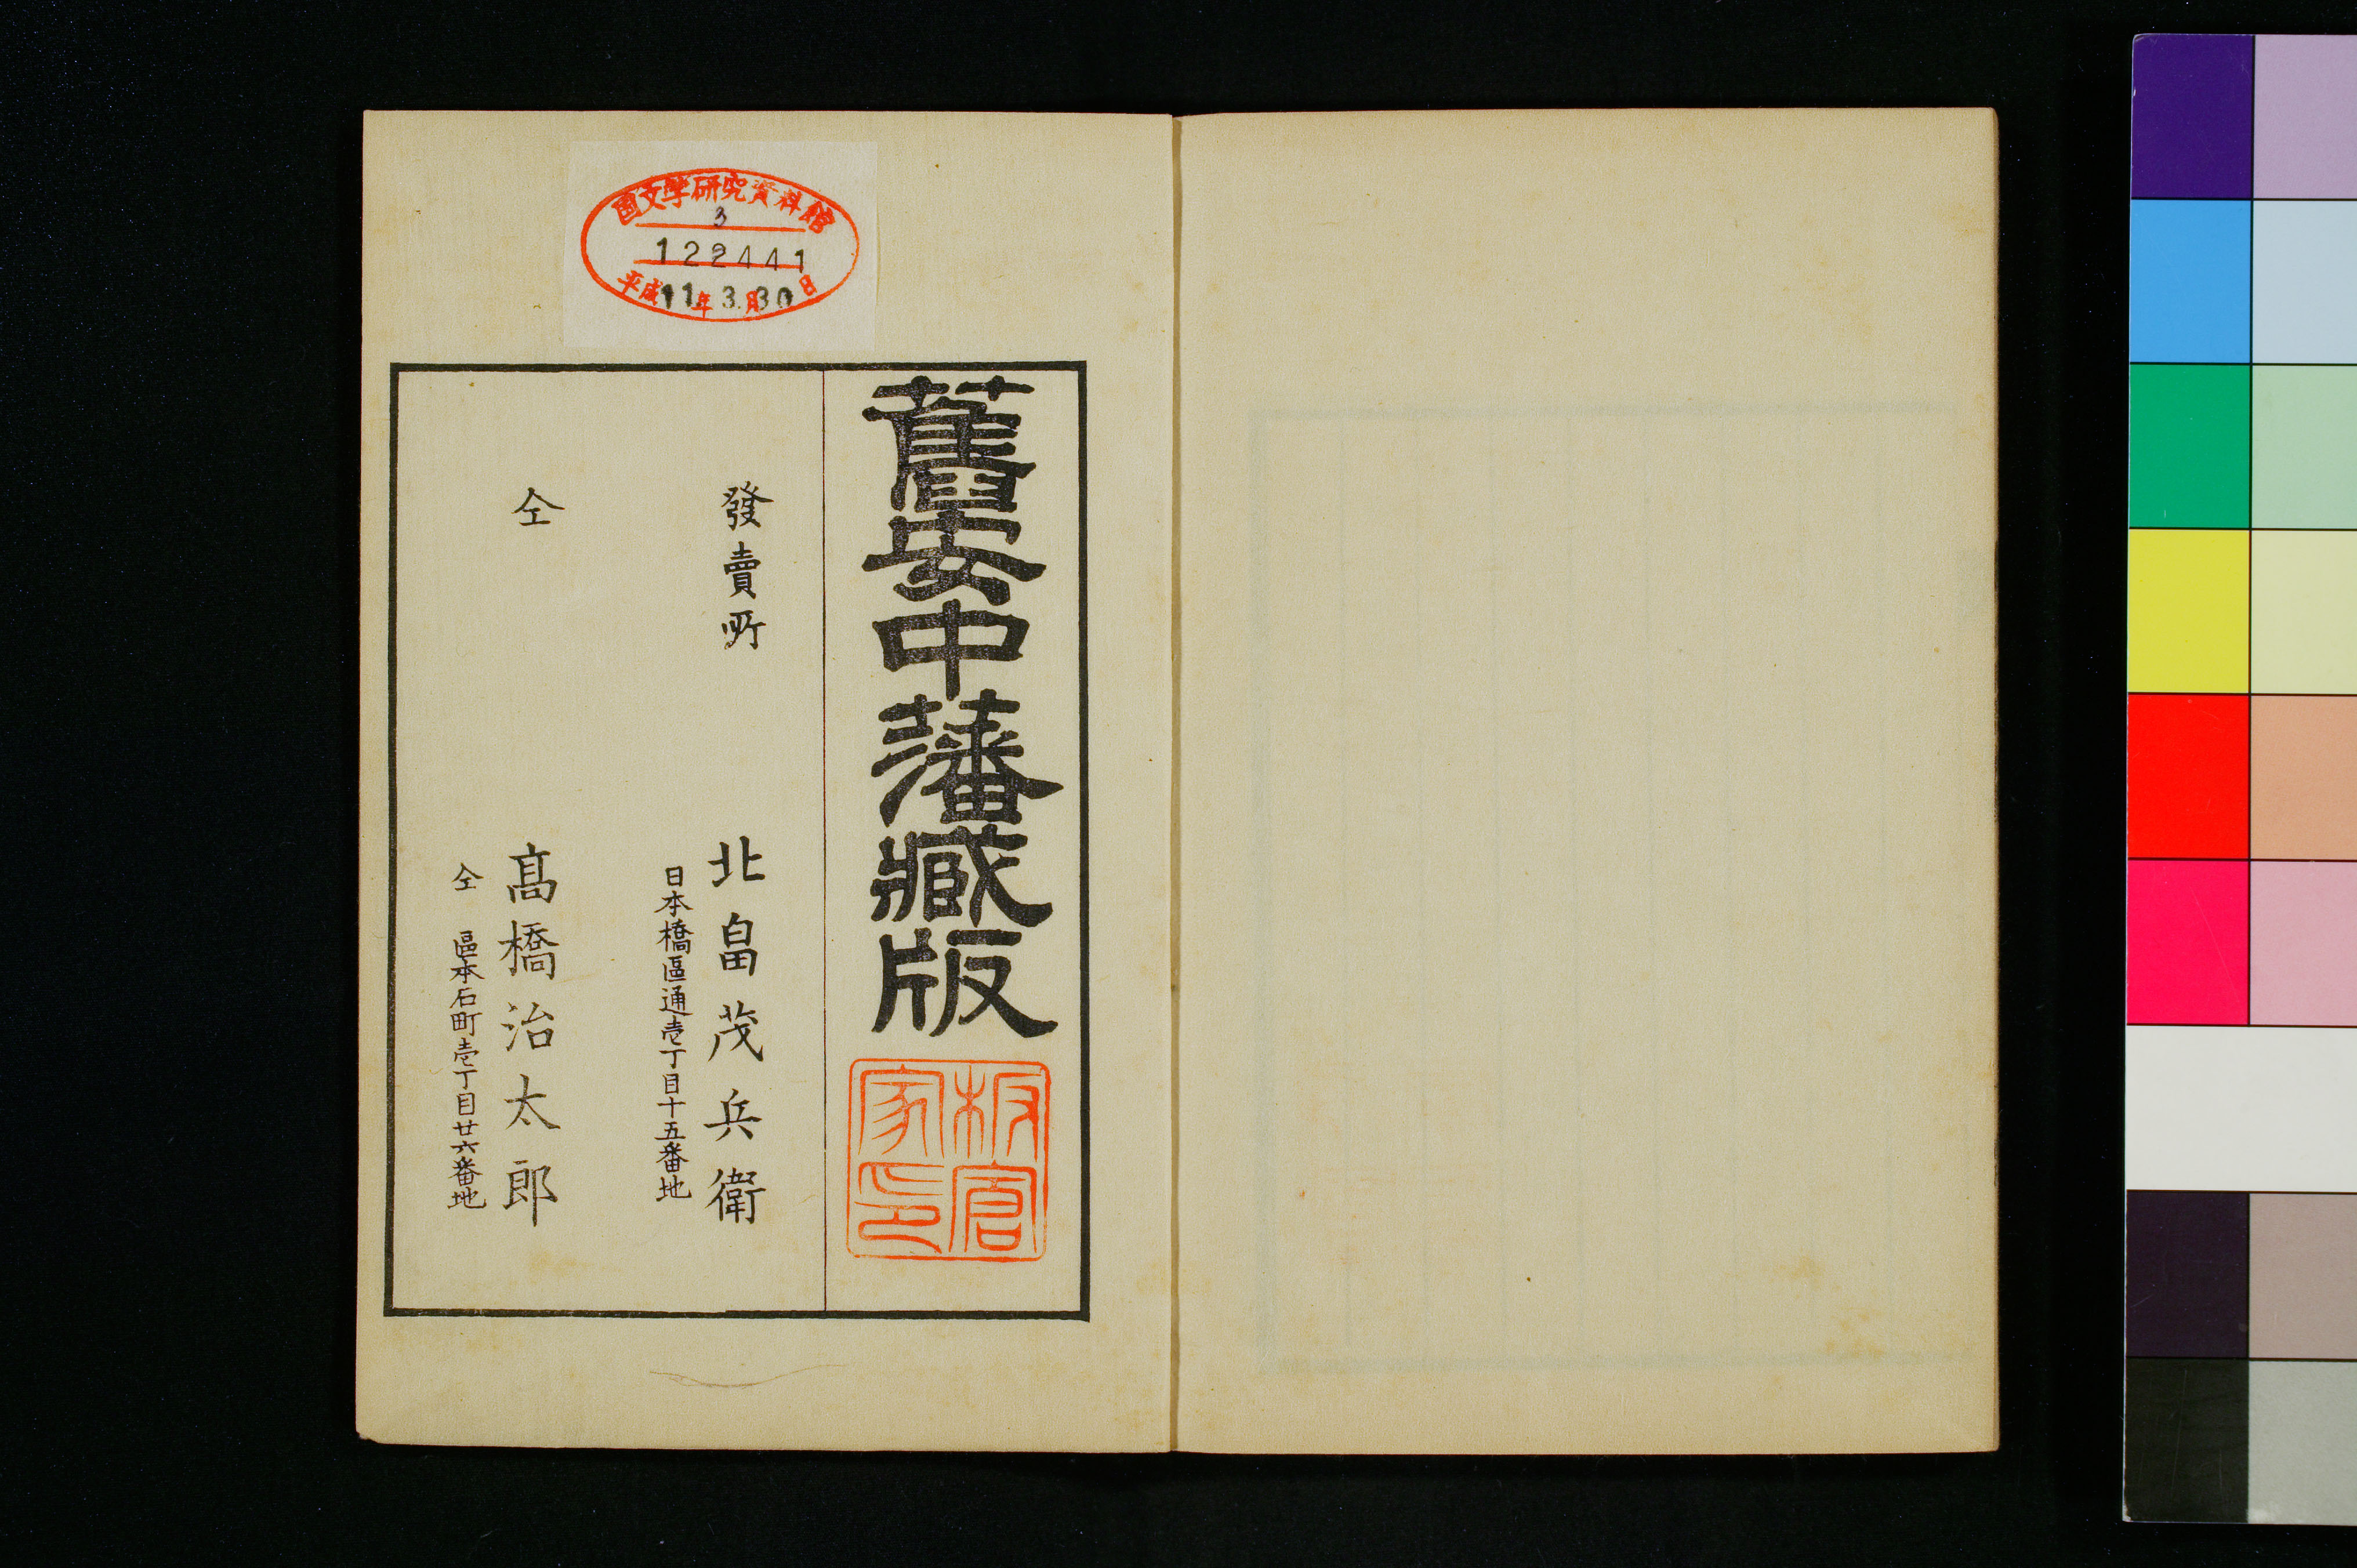 國文學研究資料館
3
122441
平成11年3月30日
舊安中藩藏版
板倉家印
發賣所
北畠茂兵衛
日本橋區通壱丁目十五番地
仝
髙橋治太郎
仝 區本石町壱丁目廿六番地